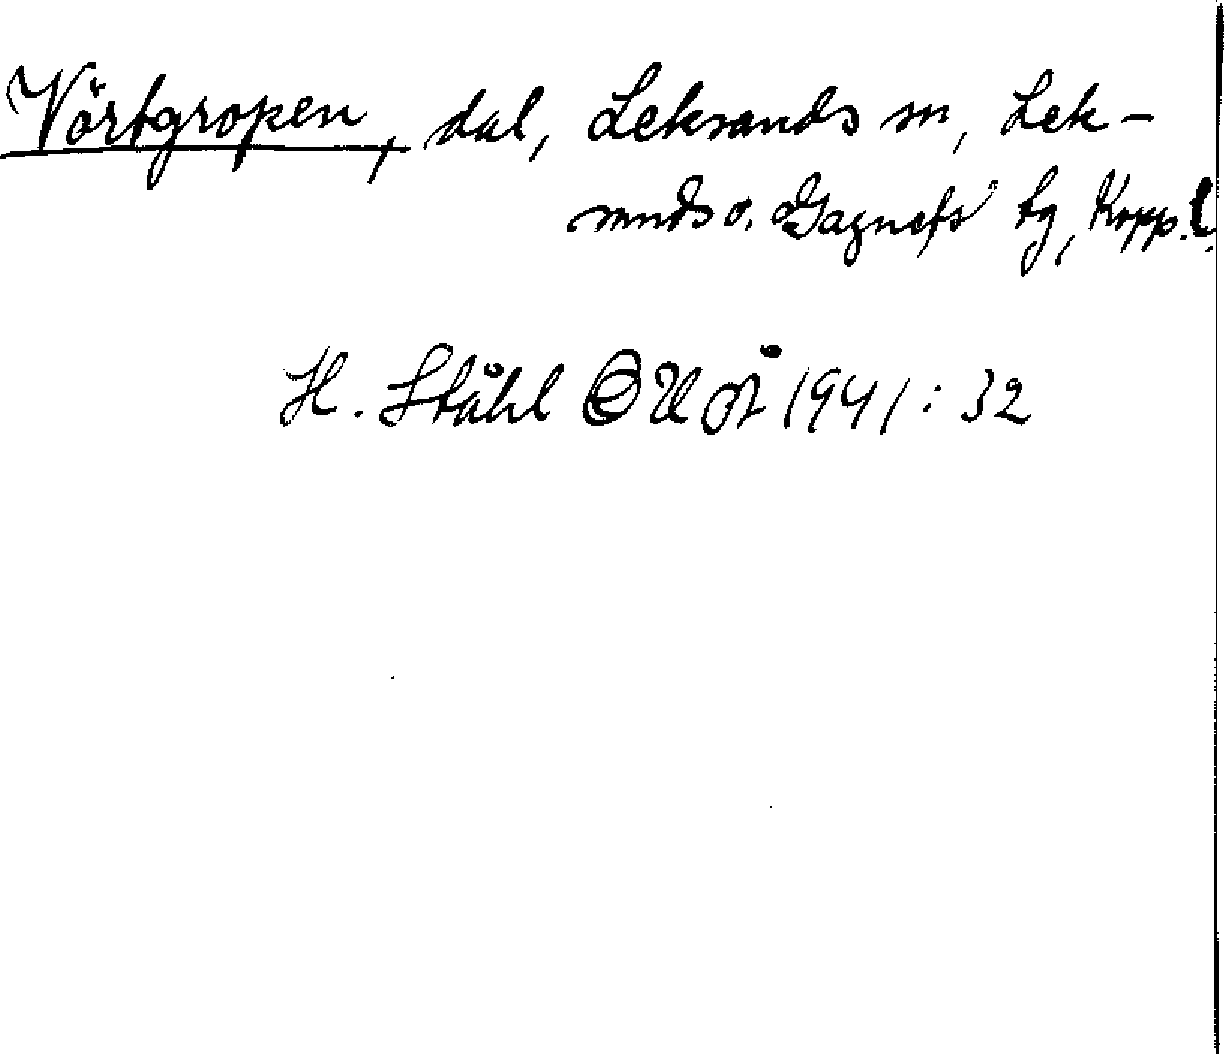 Vörtgropen, dal, Leksands sn, Lek-
sands o. Gagnefs tg, Kopp. l.
H. Ståhl OUÅ 1941:32